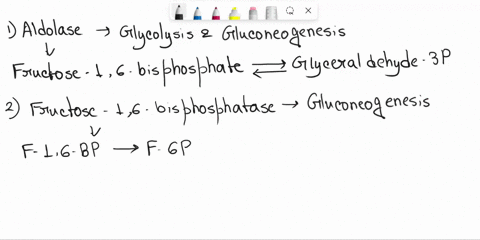 1) Aldolase → Glycolysis & Gluconeogenesis
↓
Fructose-1,6-bisphosphate ⇌ Glyceraldehyde-3P
2) Fructose-1,6-bisphosphatase → Gluconeogenesis
↓
F-1,6-BP → F-6P